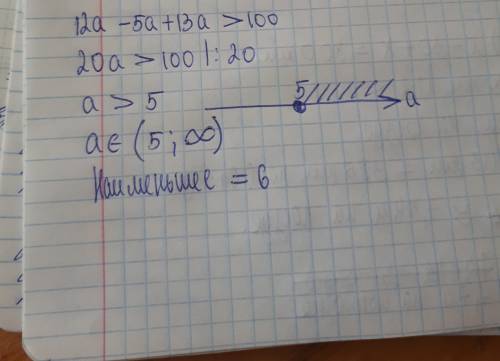 12a - 5a + 13a > 100
20a > 100 |: 20
a > 5
5 a
a ∈ (5; ∞)
Наименьшее = 6